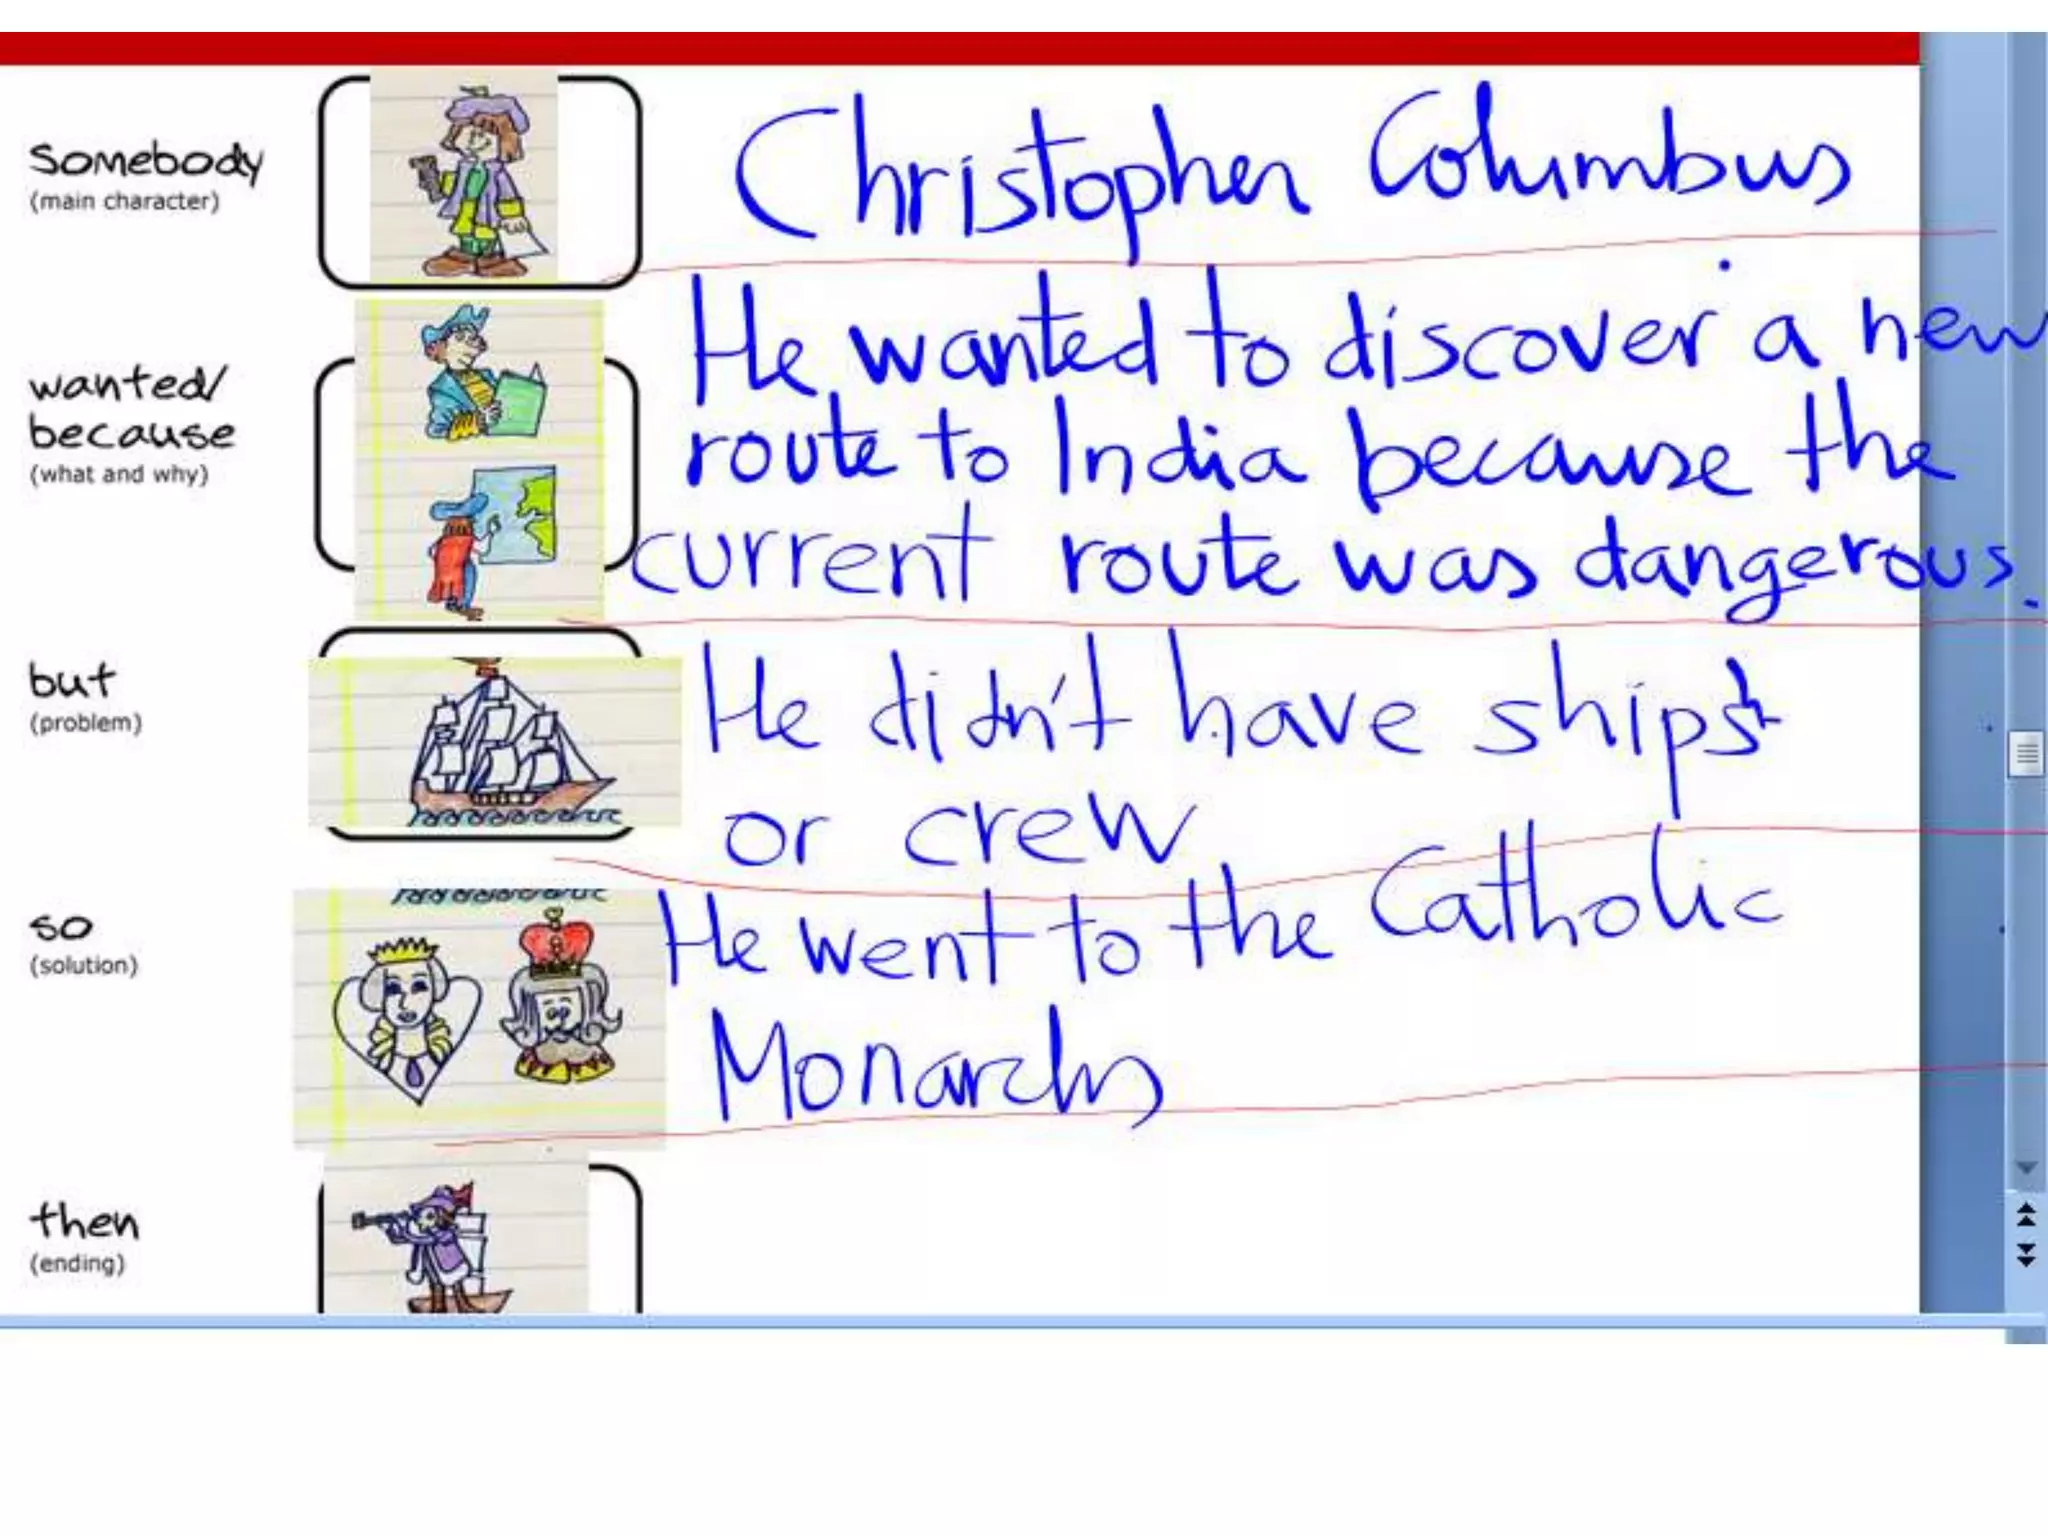 Somebody
(main character)
Christopher Columbus
wanted/
because
(what and why)
He wanted to discover a new
route to India because the
current route was dangerous.
but
(problem)
He didn't have ships
or crew
so
(solution)
He went to the Catholic
Monarchs
then
(ending)